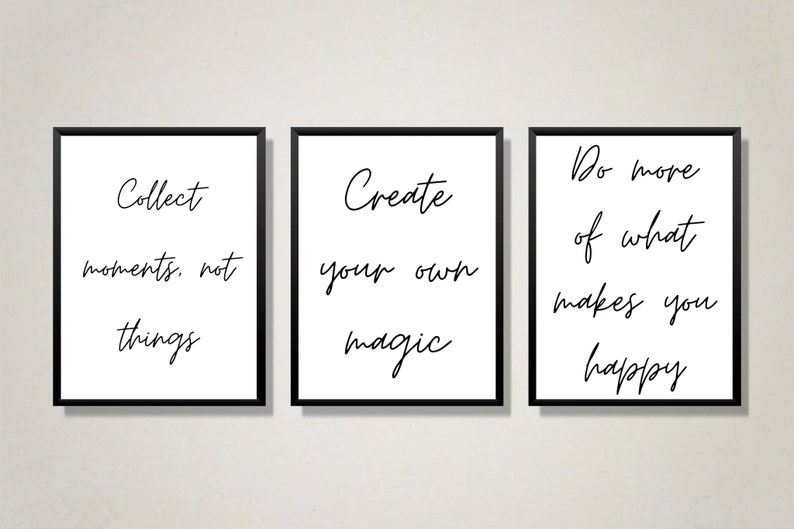 Collect
moments, not
things
Create
your own
magic
Do more
of what
makes you
happy